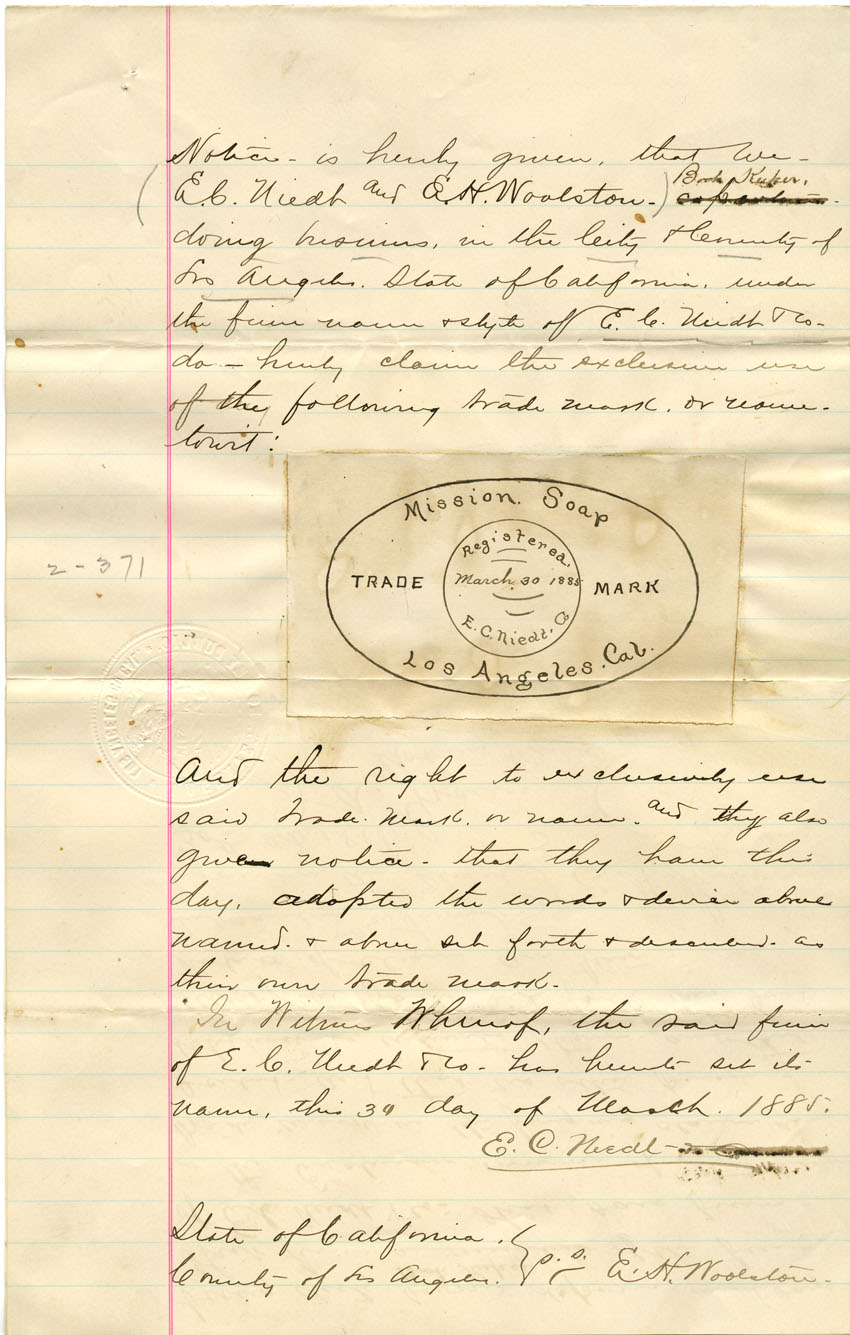 Notice - is hereby given, that We -
Book Keeper,
(E. C. Niedt and E. H. Woolston -)
doing business, in the City & County of
Los Angeles. State of California, under
the firm name & style of E. C. Niedt & Co -
do - hereby claim the exclusive use
of the following trade mark. or name -
towit:
Mission. Soap
Registered.
TRADE March 30 1885 MARK
E. C. Niedt. Co
Los Angeles. Cal.
2-371
And the right to exclusively use
said Trade. Mark. or name. and they also
give notice - that they have this
day, adopted the words & device above
named. & above set forth & described - as
their own trade mark -
In Witness Whereof, the said firm
of E. C. Niedt & Co - has hereunto set its
name, this 30 day of March. 1885.
E. C. Niedt
State of California.
County of Los Angeles. } s.s. E. H. Woolston -